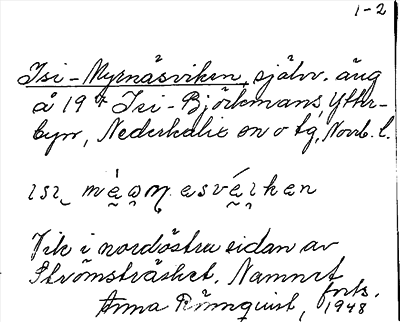 1-2
Isi-Myrnäsviken, självr. äng
å 19⁴ Isi-Björkmans, Ytter-
byn, Nederkalix sn o tg, Norrb. l.
Vik i nordöstra sidan av
Strömsträsket. Namnet
forts.
Anna Rönnquist, 1948